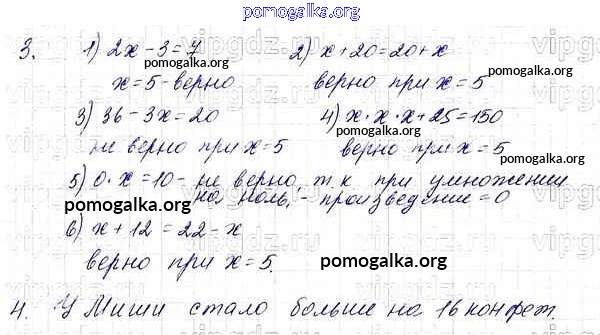 pomogalka.org
3. 1) 2x - 3 = 7 2) x + 20 = 20 + x
pomogalka.org pomogalka.org
x = 5 - верно верно при x = 5
3) 36 - 3x = 20 4) x · x · x + 25 = 150
pomogalka.org
не верно при x = 5 верно при x = 5
pomogalka.org pomogalka.org
5) 0 · x = 10 - не верно, т.к при умножении
на ноль, - произведение = 0
pomogalka.org
6) x + 12 = 22 - x
верно при x = 5.
pomogalka.org
4. У Миши стало больше на 16 конфет.